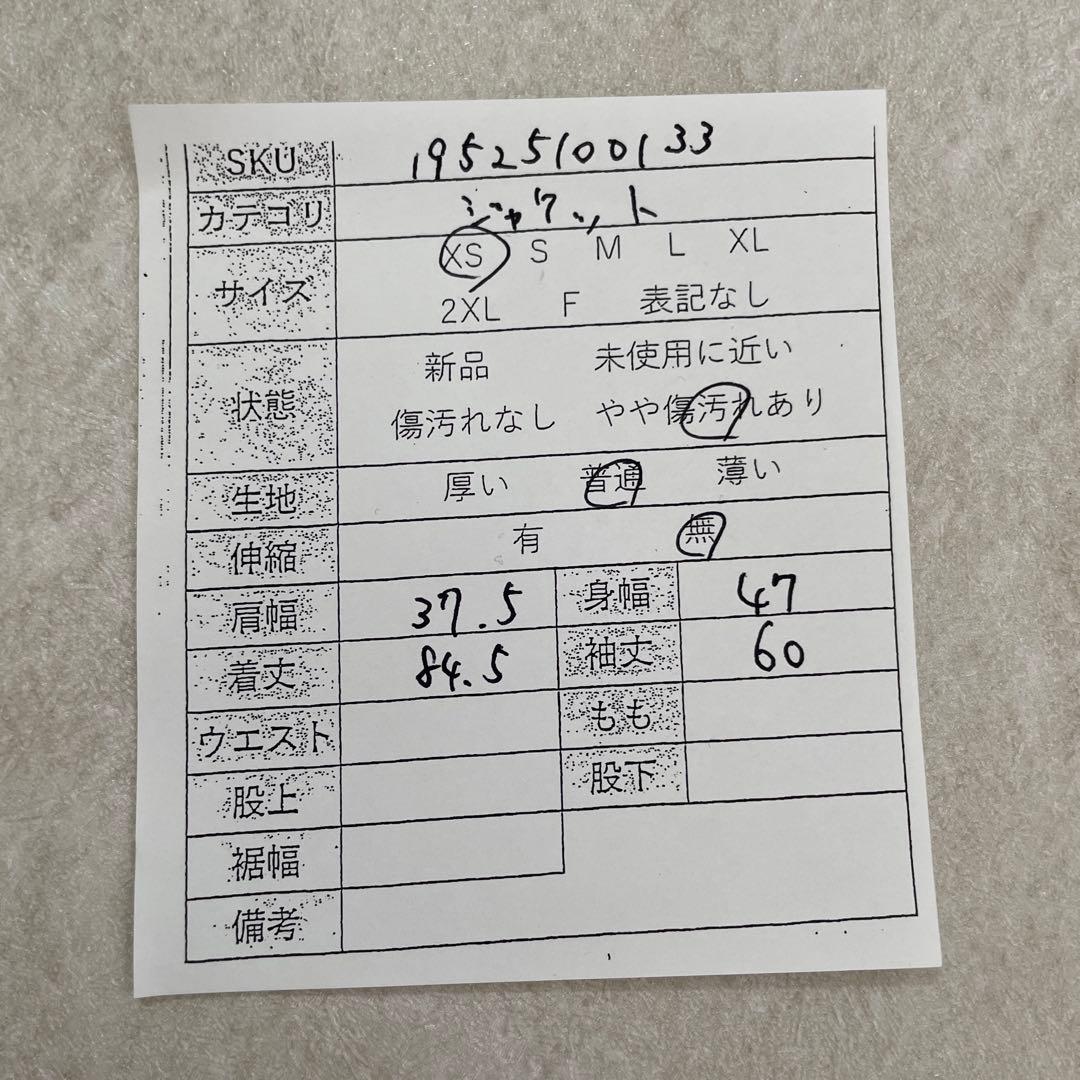 SKU 19525100133
カテゴリ ジャケット
サイズ XS S M L XL
2XL F 表記なし
状態 新品 未使用に近い
傷汚れなし やや傷汚れあり
生地 厚い 普通 薄い
伸縮 有 無
肩幅 37.5 身幅 47
着丈 84.5 袖丈 60
ウエスト もも
股上 股下
裾幅
備考